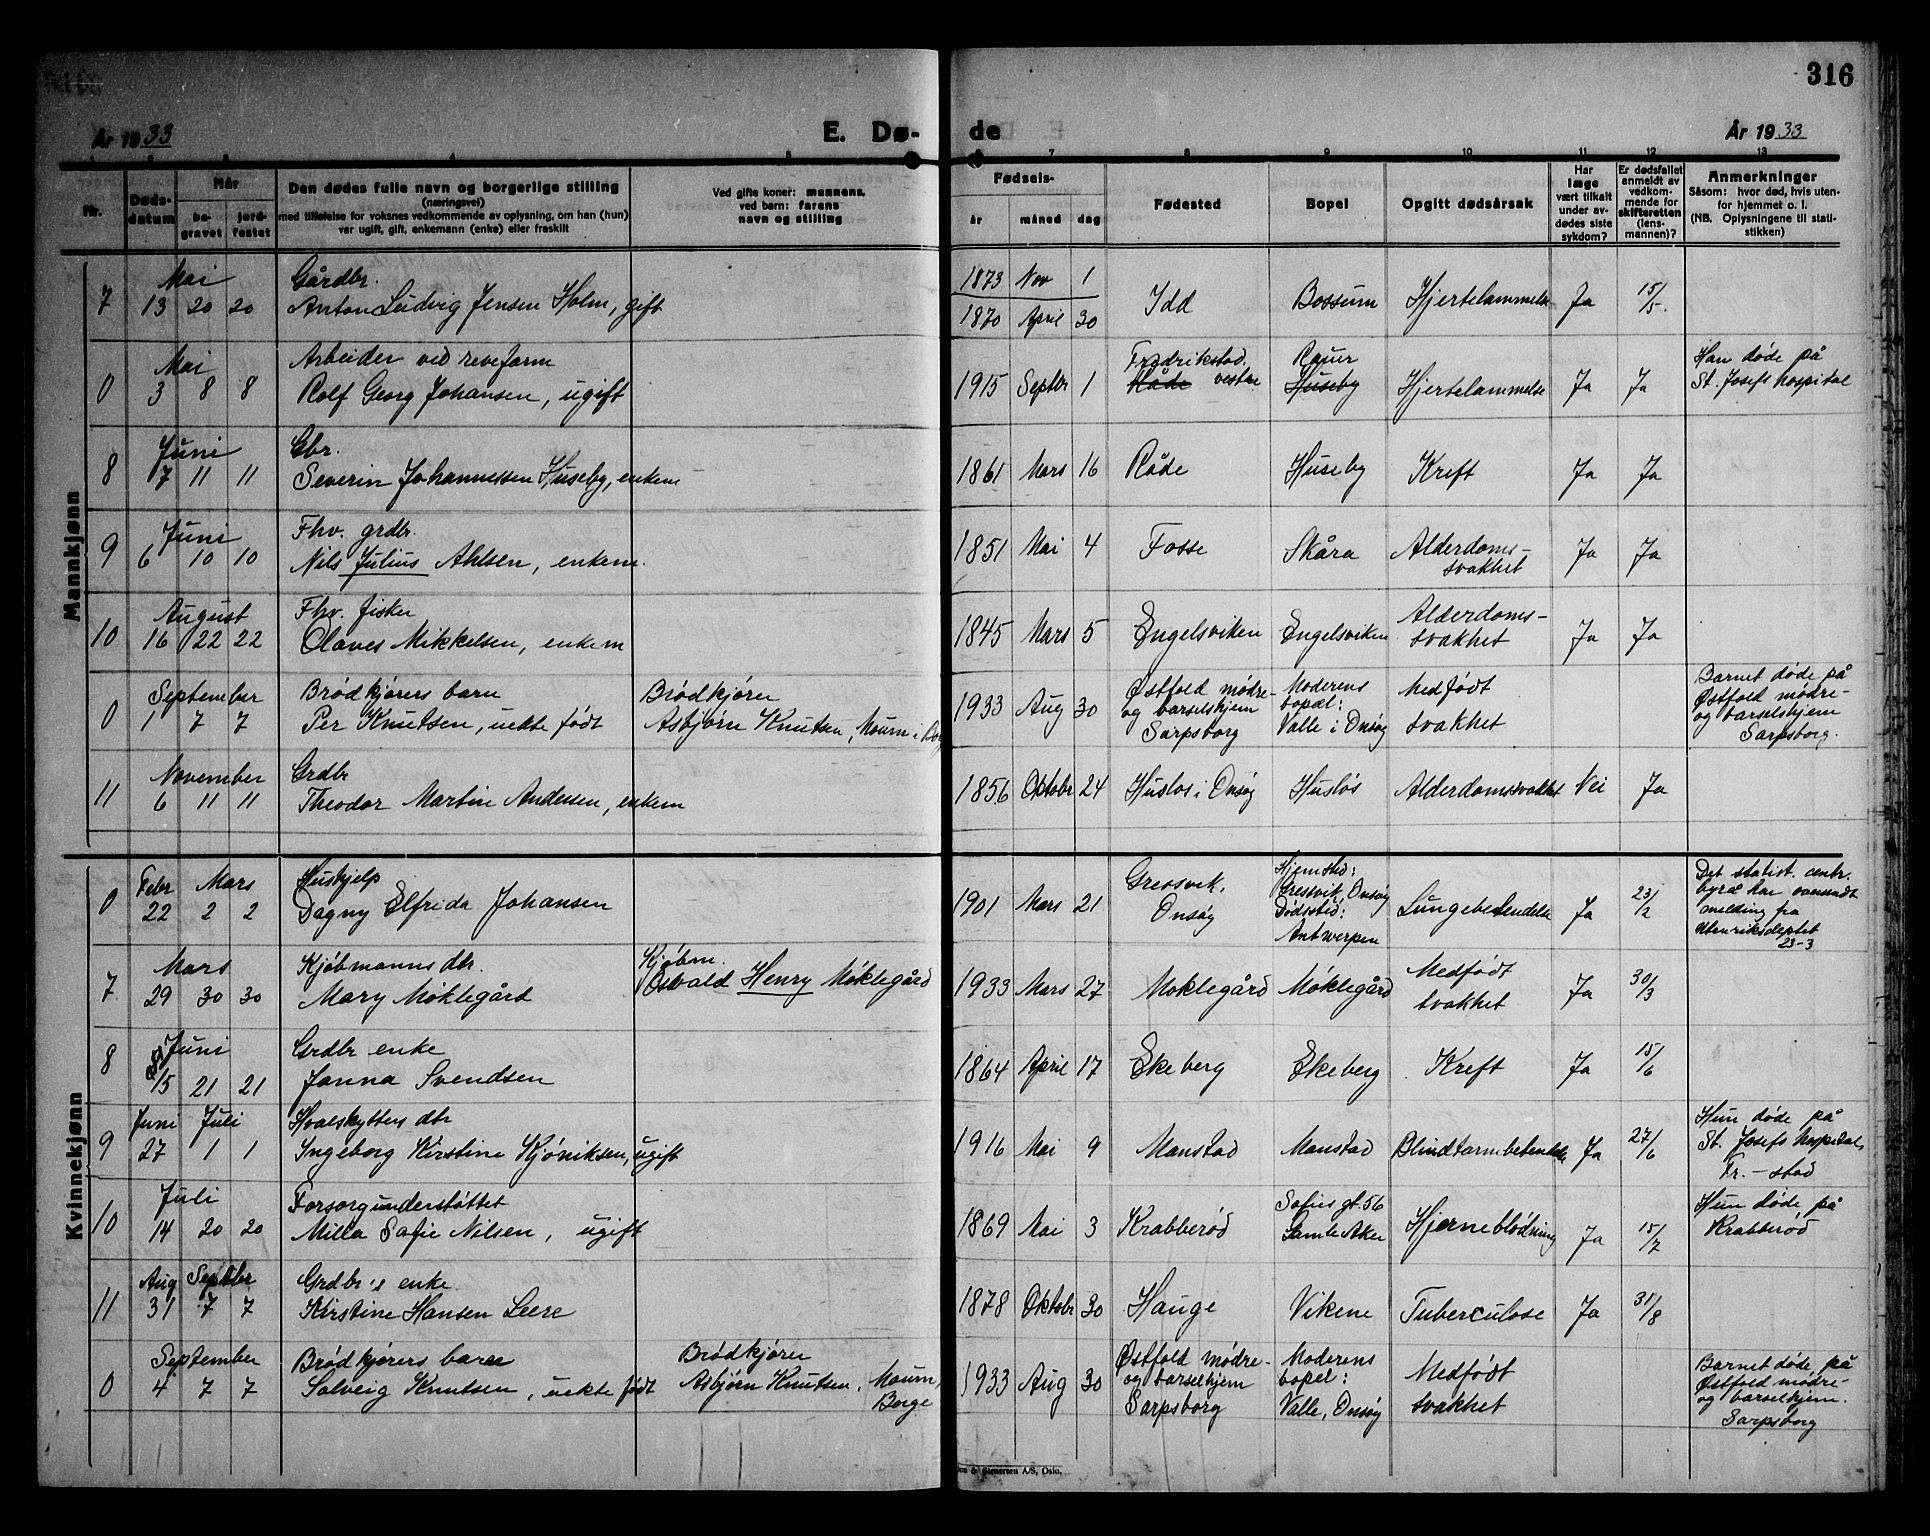 316
År 1933
E. Dø-
de
År 1933
Nr.
Døds-
datum
Når
be-
gravet
jord-
festet
Den dødes fulle navn og borgerlige stilling
(næringsvei)
med tilføielse for voksnes vedkommende av oplysning, om han (hun)
var ugift, gift, enkemann (enke) eller fraskilt
Ved gifte koner: mannens,
ved barn: farens
navn og stilling
Fødsels-
år
måned
dag
7
8
9
10
11
12
13
Fødested
Bopel
Opgitt dødsårsak
Har
læge
vært tilkalt
under av-
dødes siste
sykdom?
Er dødsfallet
anmeldt av
vedkom-
mende for
skifteretten
(lens-
mannen)?
Anmerkninger
Såsom: hvor død, hvis uten-
for hjemmet o. l.
(NB. Oplysningene til stati-
stikken)
Mannkjønn
Mai
Gårdbr.
7 13 20 20 Anton Ludvig Jensen Holm, gift
1873 Nov 1
1870 April 30
Idd Bossum Hjertelammelse Ja 15/5.
Mai
Arbeider ved revefarm
0 3 8 8 Rolf Georg Johansen, ugift
Fredrikstad, Rauer
1915 Septbr 1 Råde vestre Huseby Hjertelammelse Ja Ja
Han døde på
St. Josefs hospital
Juni
Gbr.
8 7 11 11 Severin Johannessen Huseby, enkem
1861 Mars 16 Råde Huseby Kreft Ja Ja
Juni
Fhv. grdbr.
9 6 10 10 Nils Julius Ahlsen, enkem.
1851 Mai 4 Fosse Skåra Alderdoms-
svakhet Ja Ja
August
Fhv. fisker
10 16 22 22 Olaves Mikkelsen, enkem
1845 Mars 5 Engelsviken Engelsviken Alderdoms-
svakhet Ja Ja
September
Brödkjörers barn
Brödkjörer
0 1 7 7 Per Knutsen, uekte født
Asbjørn Knutsen, Moum i
1933 Aug 30
Østfold mødre-
og barselshjem
Sarpsborg
Moderens
bopæl:
Valle i Onsøy
Medfødt
svakhet
Barnet døde på
Østfold mødre-
og barselshjem
Sarpsborg.
November
Grdbr
11 6 11 11 Theodor Martin Andersen, enkem
1856 Oktobr 24 Husløs i Onsøy Husløs Alderdomssvakhet Nei Ja
Kvinnekjønn
Febr Mars
Hushjelp
0 22 2 2 Dagny Elfrida Johansen
1901 Mars 21
Gressvik,
Onsøy
Hjemsted:
Gressvik, Onsøy
Dødssted:
Antwerpen
Lungebetendelse Ja 23/2
Det statist. centr.
byrå har oversendt
melding fra
Utenriksdeptet
23-3
Mars
Kjöbmanns dtr.
Kjøbm.
7 29 30 30 Mary Møklegård
Osvald Henry Møklegård
1933 Mars 27 Moklegård Møklegård Medfødt
svakhet Ja 30/3
Juni
Grdbr enke
8 15 21 21 Janna Svendsen
1864 April 17 Ekeberg Ekeberg Kreft Ja 15/6
Juni Juli
Hvalskytters dtr
9 27 1 1 Ingeborg Kirstine Kjöniksen, ugift
1916 Mai 9 Manstad Manstad Blindtarmbetendelse Ja 27/6
Hun døde på
St. Josefs hospital,
Fr.-stad
Juli
Forsorgunderstøttet
10 14 20 20 Milla Sofie Nilsen, ugift
1869 Mai 3 Krabberød
Sofies gt. 56
Gamle Aker
Hjerneblödning Ja 15/7
Hun døde på
Krabberød
Aug Septbr
Grdbr's enke
11 31 7 7 Kirstine Hansen Leere
1878 Oktobr 30 Hauge Vikene Tuberculose Ja 31/8
September
Brödkjörers barn
Brödkjörer
0 4 7 7 Solveig Knutsen, uekte født
Asbjørn Knutsen, Moum,
Borge
1933 Aug 30
Østfold mødre-
og barselhjem
Sarpsborg
Moderens
bopel:
Valle, Onsøy
Medfødt
svakhet
Barnet døde på
Østfold mødre-
og barselhjem.
Sarpsborg
& Stenersen A/S, Oslo.